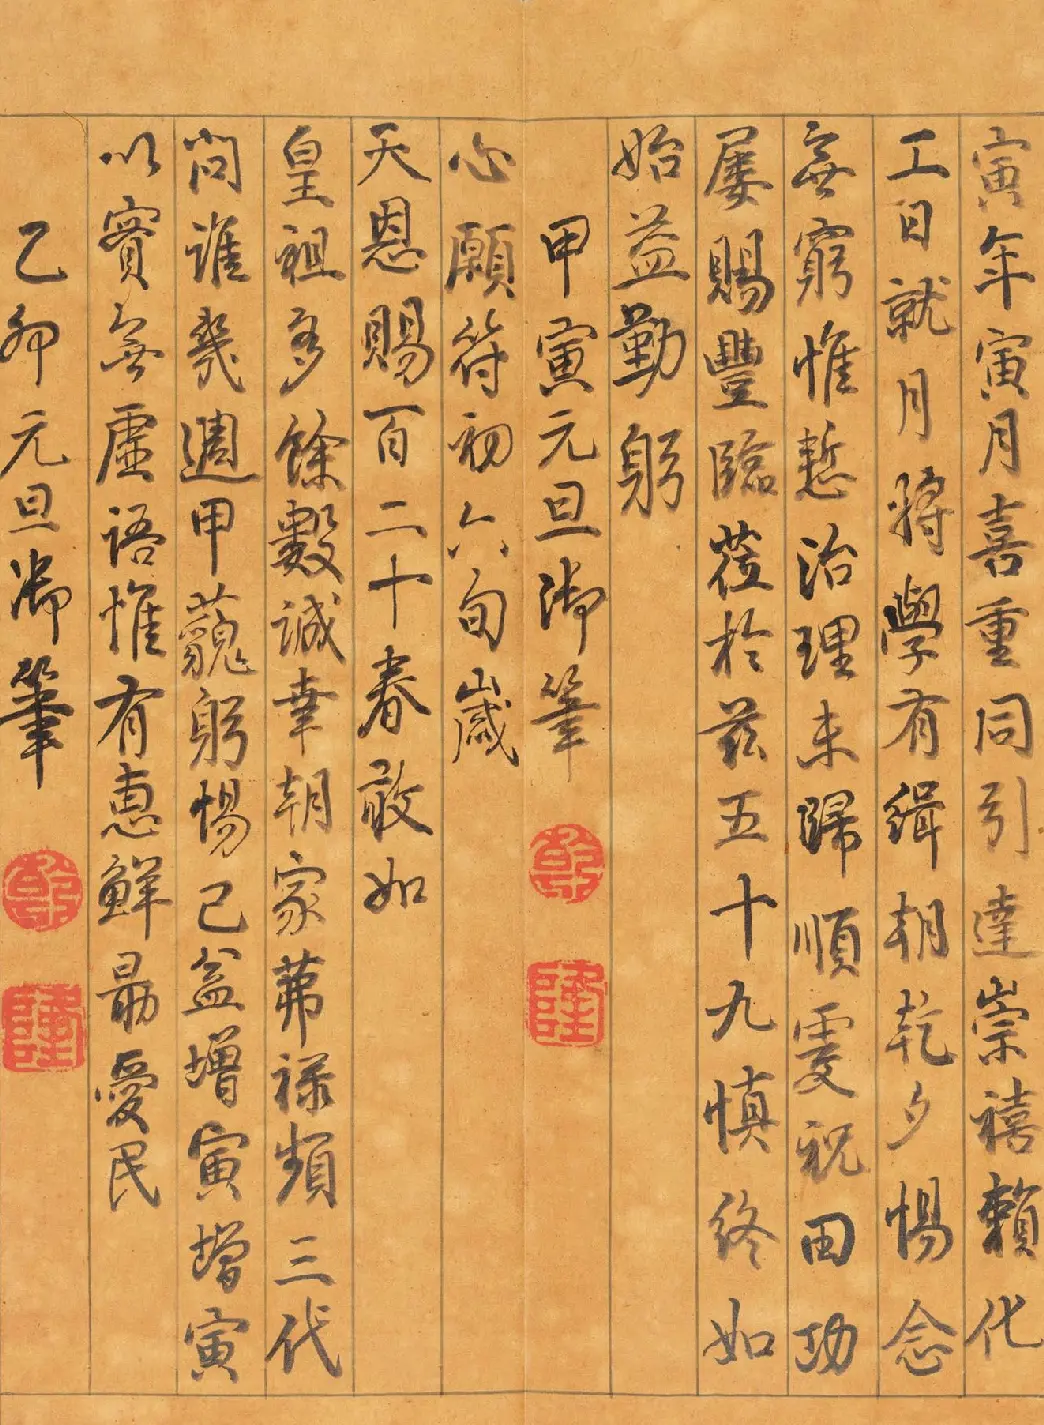 寅年寅月喜重同引達崇禧賴化
工日就月將學有緝朝乾夕惕念
無窮惟慙治理未歸順虔祝田功
屡賜豐臨蒞於茲五十九慎終如
始益勤躬
甲寅元旦御筆
乾
隆
心願符初六旬歲
天恩賜百二十春敢如
皇祖多餘數誠幸朝家茀祿頻三代
問誰幾週甲藐躬惕已益增寅增寅
以實無虛語惟有惠鮮勗愛民
乙卯元旦御筆
乾
隆